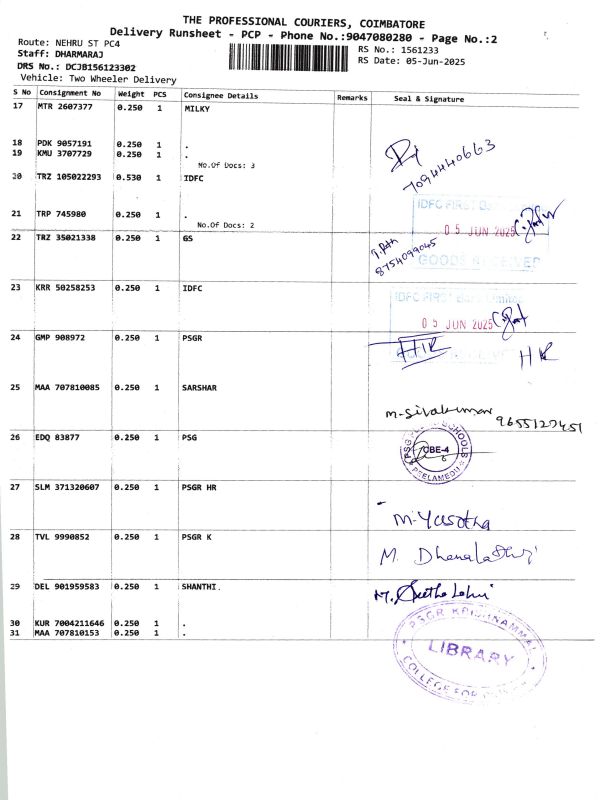 THE PROFESSIONAL COURIERS, COIMBATORE
Delivery Runsheet - PCP - Phone No.:9047080280 - Page No.:2
Route: NEHRU ST PC4
RS No.: 1561233
Staff: DHARMARAJ
RS Date: 05-Jun-2025
DRS No.: DCJB156123302
Vehicle: Two Wheeler Delivery
S No Consignment No Weight PCS Consignee Details Remarks Seal & Signature
17 MTR 2607377 0.250 1 MILKY
18 PDK 9057191 0.250 1 .
19 KMU 3707729 0.250 1 .
No.Of Docs: 3
7094440663
20 TRZ 105022293 0.530 1 IDFC
IDFC FIRST
21 TRP 745980 0.250 1 .
No.Of Docs: 2
05 JUN 2025
22 TRZ 35021338 0.250 1 GS
8754099045
GOODS RECEIVED
23 KRR 50258253 0.250 1 IDFC
IDFC FIRST Bank Limited
05 JUN 2025
24 GMP 908972 0.250 1 PSGR
HR
HR
25 MAA 707810085 0.250 1 SARSHAR
M. Sivakumar
9655127451
26 EDQ 83877 0.250 1 PSG
PSG SCHOOLS
CBE-4
PEELAMEDU
27 SLM 371320607 0.250 1 PSGR HR
M. Yasotha
28 TVL 9990852 0.250 1 PSGR K
29 DEL 901959583 0.250 1 SHANTHI.
30 KUR 7004211646 0.250 1 .
31 MAA 707810153 0.250 1 .
PSGR KRISHNAMMAL
LIBRARY
COLLEGE FOR WOMEN